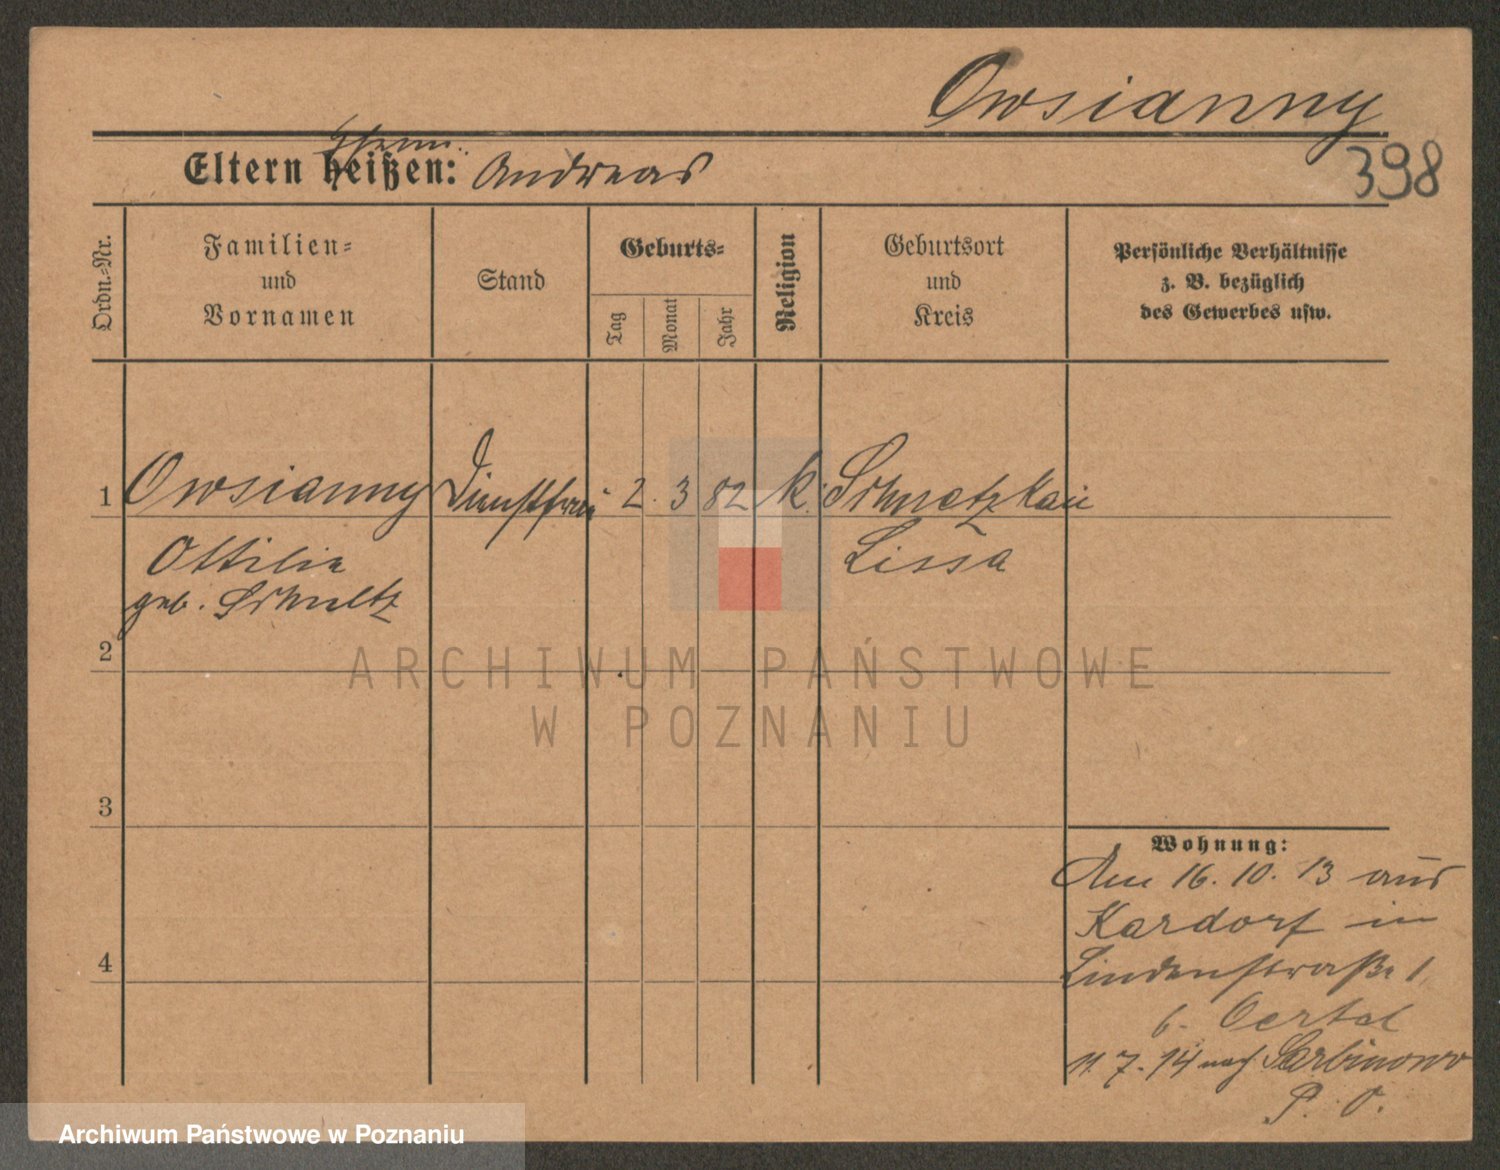 Owsianny
398
Ehem.
Eltern heißen: Andreas
Ordn.-Nr.
Familien-
und
Vornamen
Stand
Geburts-
Tag
Monat
Jahr
Religion
Geburtsort
und
Kreis
Persönliche Verhältnisse
z. B. bezüglich
des Gewerbes usw.
1 Owsianny Dienstfrau 2. 3 82 k. Schmetzkau
Ottilie Lissa
geb. Schultz
2
ARCHIWUM PAŃSTWOWE
W POZNANIU
3
Wohnung:
Am 16. 10. 13 aus
Kardorf in
Lindenstraße 1
4
b. Oertel
11. 7. 14 nach Sarbinowo
P. O.
Archiwum Państwowe w Poznaniu